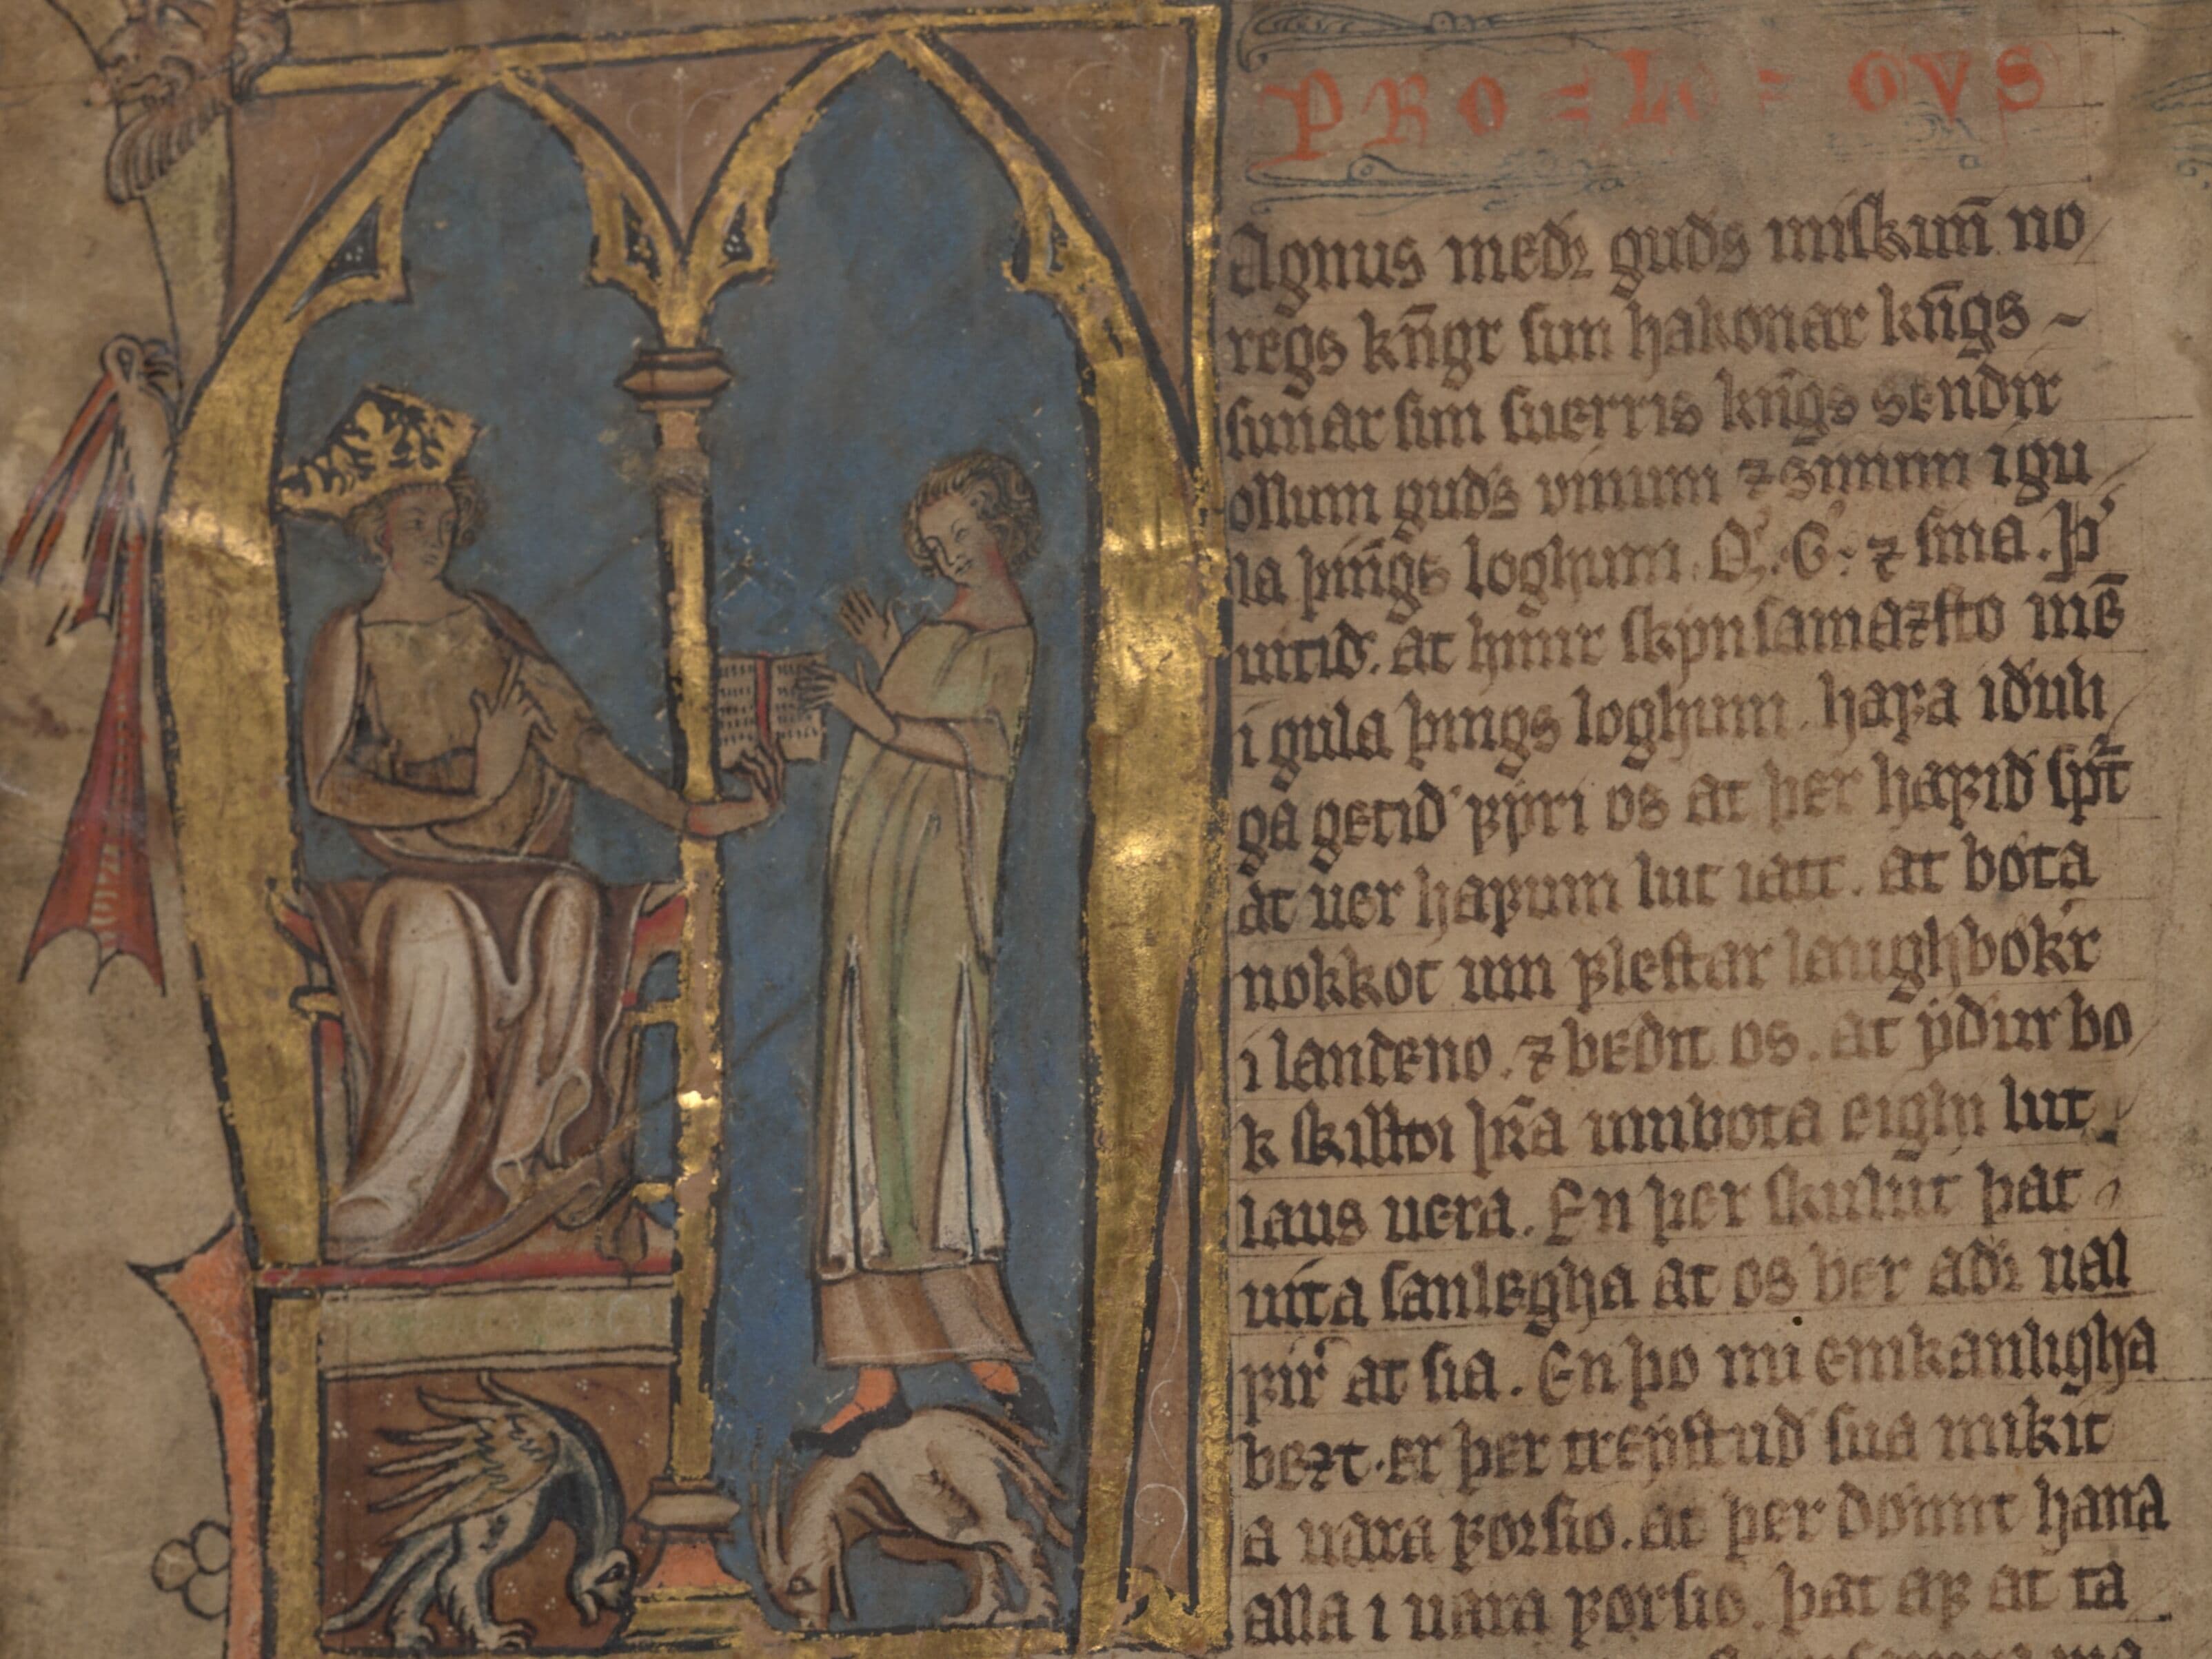 PRO=L = GVS
Agnus medꝛ guds miskun̄ no
regs kn̄gr sun hakonar kn̄gs ~
sunar sun suerris kn̄gs sendir
ollum guds vinum ⁊ sinum igu
la þin̄gs loghum. Q. G. ⁊ sina. þ'
uitid. at hinir skynsamaꝛsto men̄
i gula þings loghum. hafa iduli
ga getid fyri os at þer hafid spt̄
at uer hafum lut iatt. at bota
nokkot um flestar laughbokr
i landeno. ⁊ bedit os. at ydur bo
k skilldi um bota eighi lut
laus uera. En þer skulut þat
uita sanlegha at os ber adꝛ nal
fir at sia. En þo nu einkanligha
beꝛt. er þer treystud sua mikit
a uara forsio. at þer domit hana
alla i uara forsio. þat af at ta